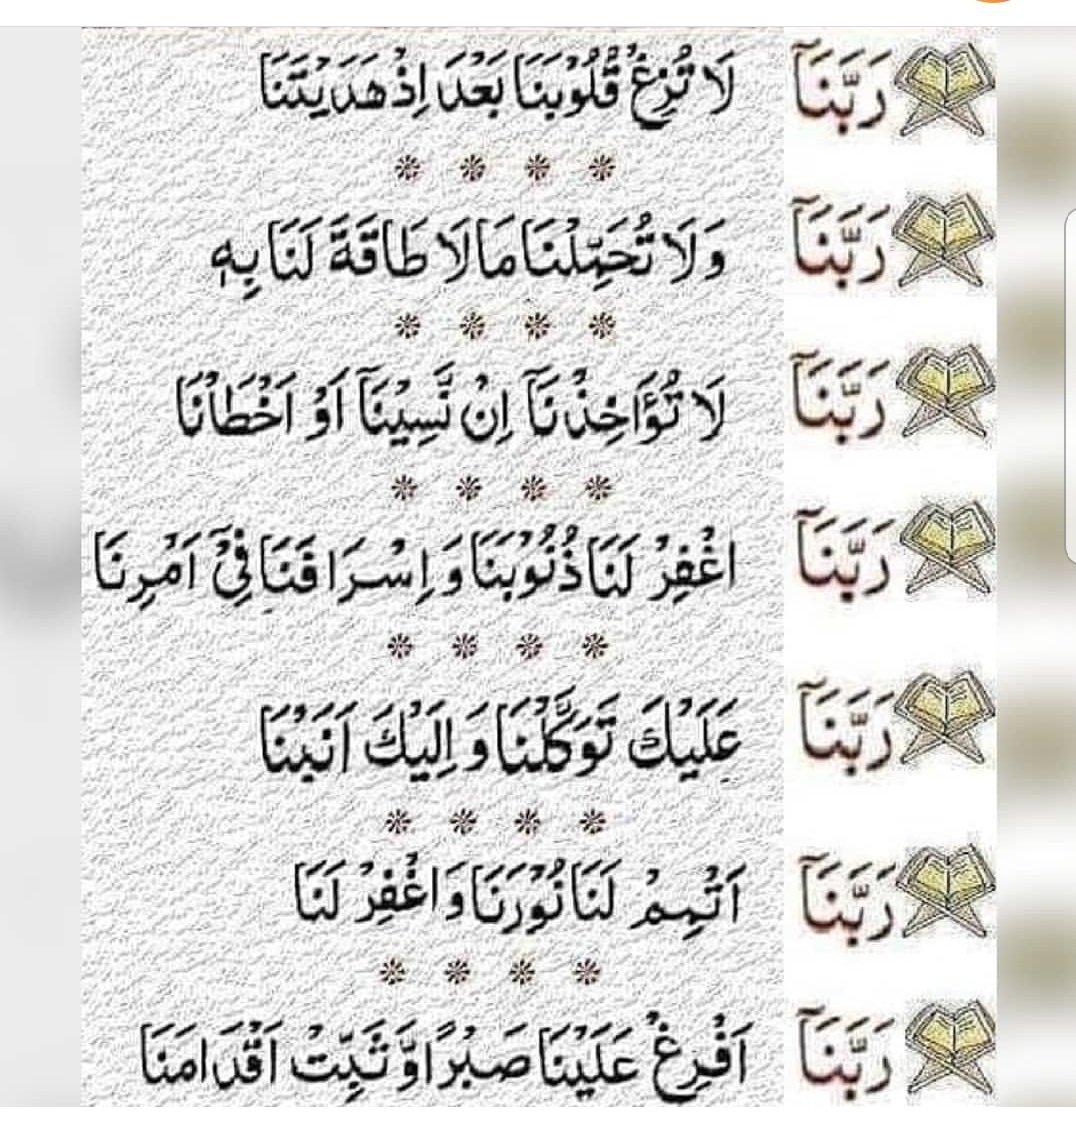 رَبَّنَآ لَا تُزِغْ قُلُوْبَنَا بَعْدَ اِذْ هَدَيْتَنَا
رَبَّنَآ وَلَا تُحَمِّلْنَا مَا لَا طَاقَةَ لَنَا بِهٖ
رَبَّنَآ لَا تُؤَاخِذْنَآ اِنْ نَّسِيْنَآ اَوْ اَخْطَاْنَا
رَبَّنَآ اغْفِرْ لَنَا ذُنُوْبَنَا وَ اِسْرَافَنَا فِيْٓ اَمْرِنَا
رَبَّنَآ عَلَيْكَ تَوَكَّلْنَا وَ اِلَيْكَ اَنَبْنَا
رَبَّنَآ اَتْمِمْ لَنَا نُوْرَنَا وَاغْفِرْ لَنَا
رَبَّنَآ اَفْرِغْ عَلَيْنَا صَبْرًا وَّ ثَبِّتْ اَقْدَامَنَا